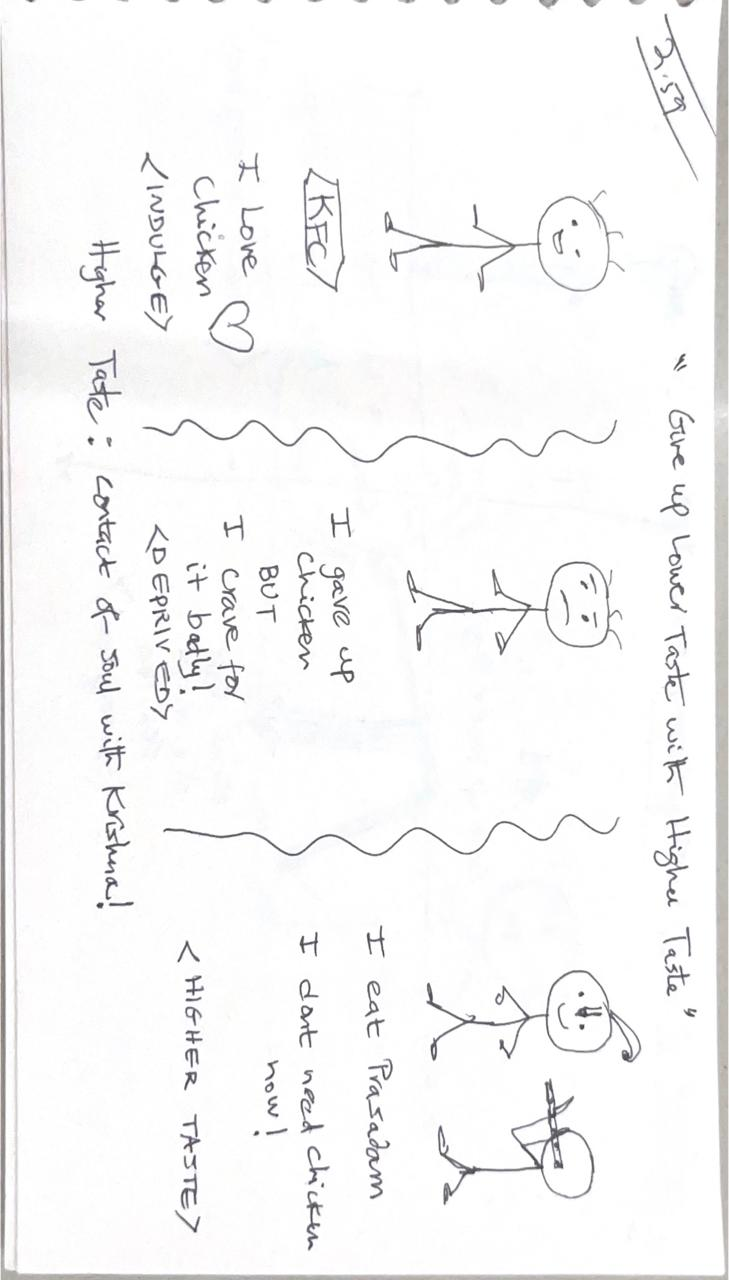 2.59
" Give up Lower Taste with Higher Taste "
<KFC>
I Love
Chicken ♡
<INDULGE>
I gave up
chicken
BUT
I crave for
it badly!
<DEPRIVED>
I eat Prasadam
I dont need chicken
now!
<HIGHER TASTE>
Higher Taste: Contact of soul with Krishna!